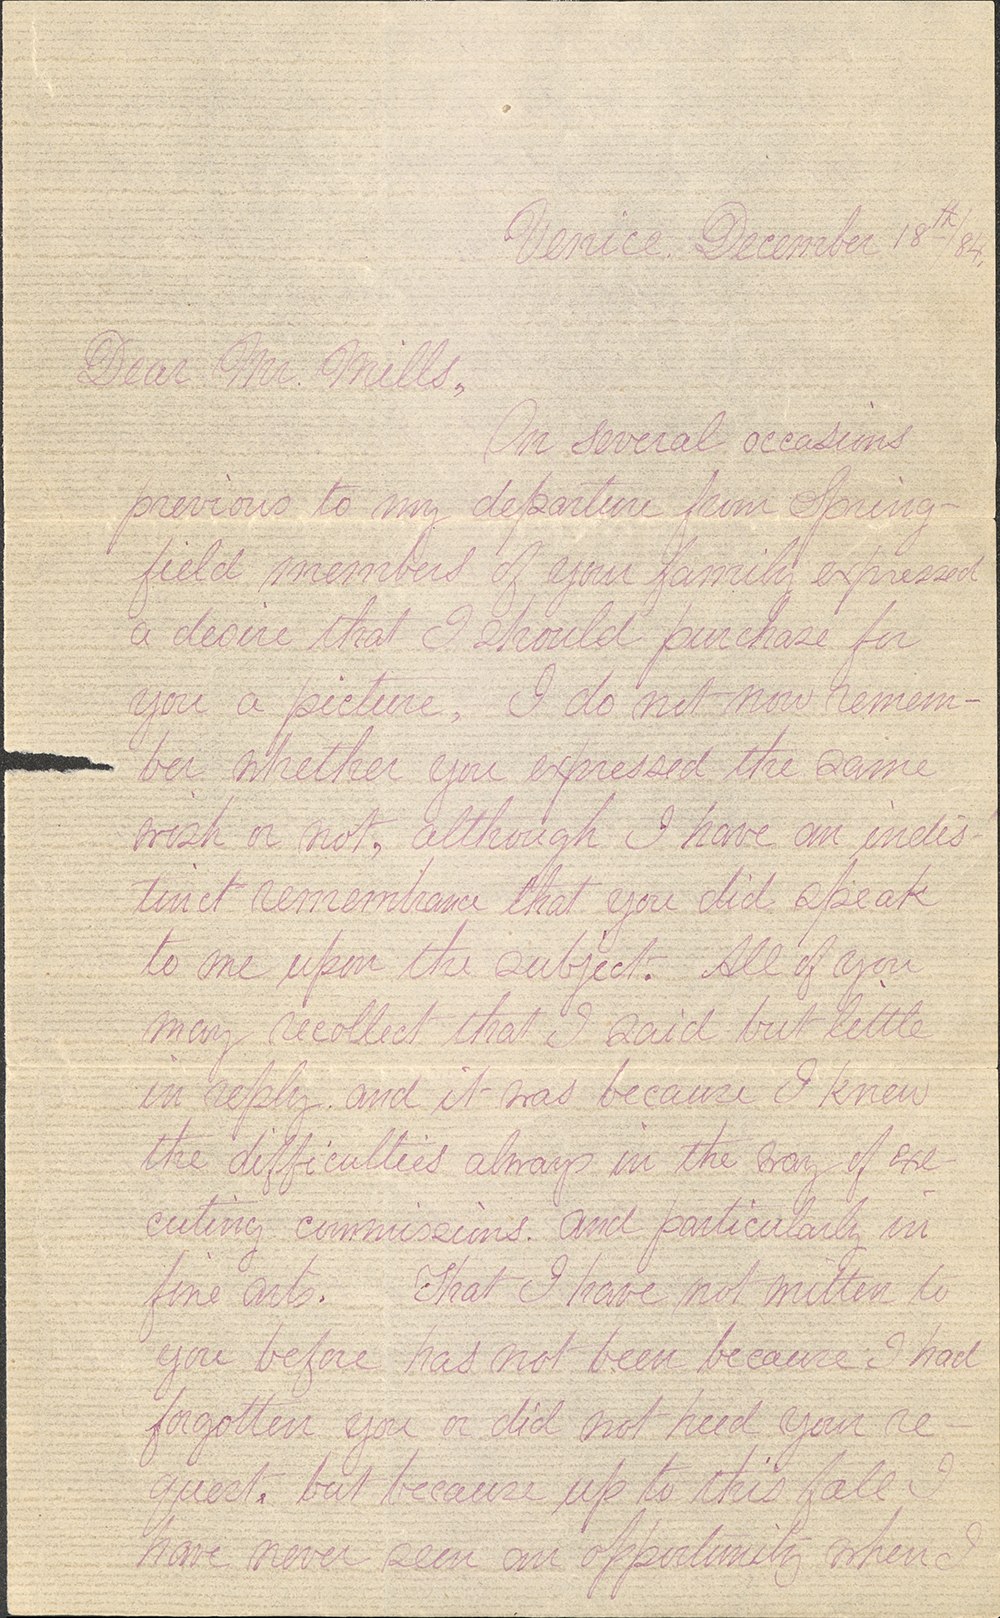 Venice. December 18th/84.
Dear Mr. Mills,
On several occasions
previous to my departure from Spring-
field members of your family expressed
a desire that I should purchase for
you a picture. I do not now remem-
ber whether you expressed the same
wish or not, although I have an indis-
tinct remembrance that you did speak
to me upon the subject. All of you
may recollect that I said but little
in reply. and it was because I knew
the difficulties always in the way of exe-
cuting commissions. and particularly in
fine arts. That I have not written to
you before has not been because I had
forgotten you or did not heed your re
quest. but because up to this fall I
have never seen an opportunity when I